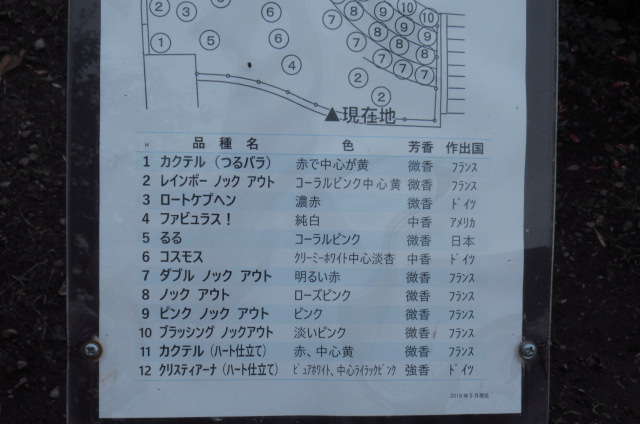 ② ③ ⑥ ⑦ ⑧ ⑨ ⑩ ⑩
① ⑤ ⑥ ⑦ ⑧ ⑨ ⑨
④ ⑦ ⑧ ⑧
② ⑦ ⑦
②
▲現在地
品種名 色 芳香 作出国
1 カクテル (つるバラ) 赤で中心が黄 微香 フランス
2 レインボー ノック アウト コーラルピンク中心黄 微香 フランス
3 ロートケプヘン 濃赤 微香 ドイツ
4 ファビュラス! 純白 中香 アメリカ
5 るる コーラルピンク 微香 日本
6 コスモス クリーミーホワイト中心淡杏 中香 ドイツ
7 ダブル ノック アウト 明るい赤 微香 フランス
8 ノック アウト ローズピンク 微香 フランス
9 ピンク ノック アウト ピンク 微香 フランス
10 ブラッシング ノックアウト 淡いピンク 微香 フランス
11 カクテル (ハート仕立て) 赤、中心黄 微香 フランス
12 クリスティアーナ (ハート仕立て) ピュアホワイト、中心ライラックピンク 強香 ドイツ